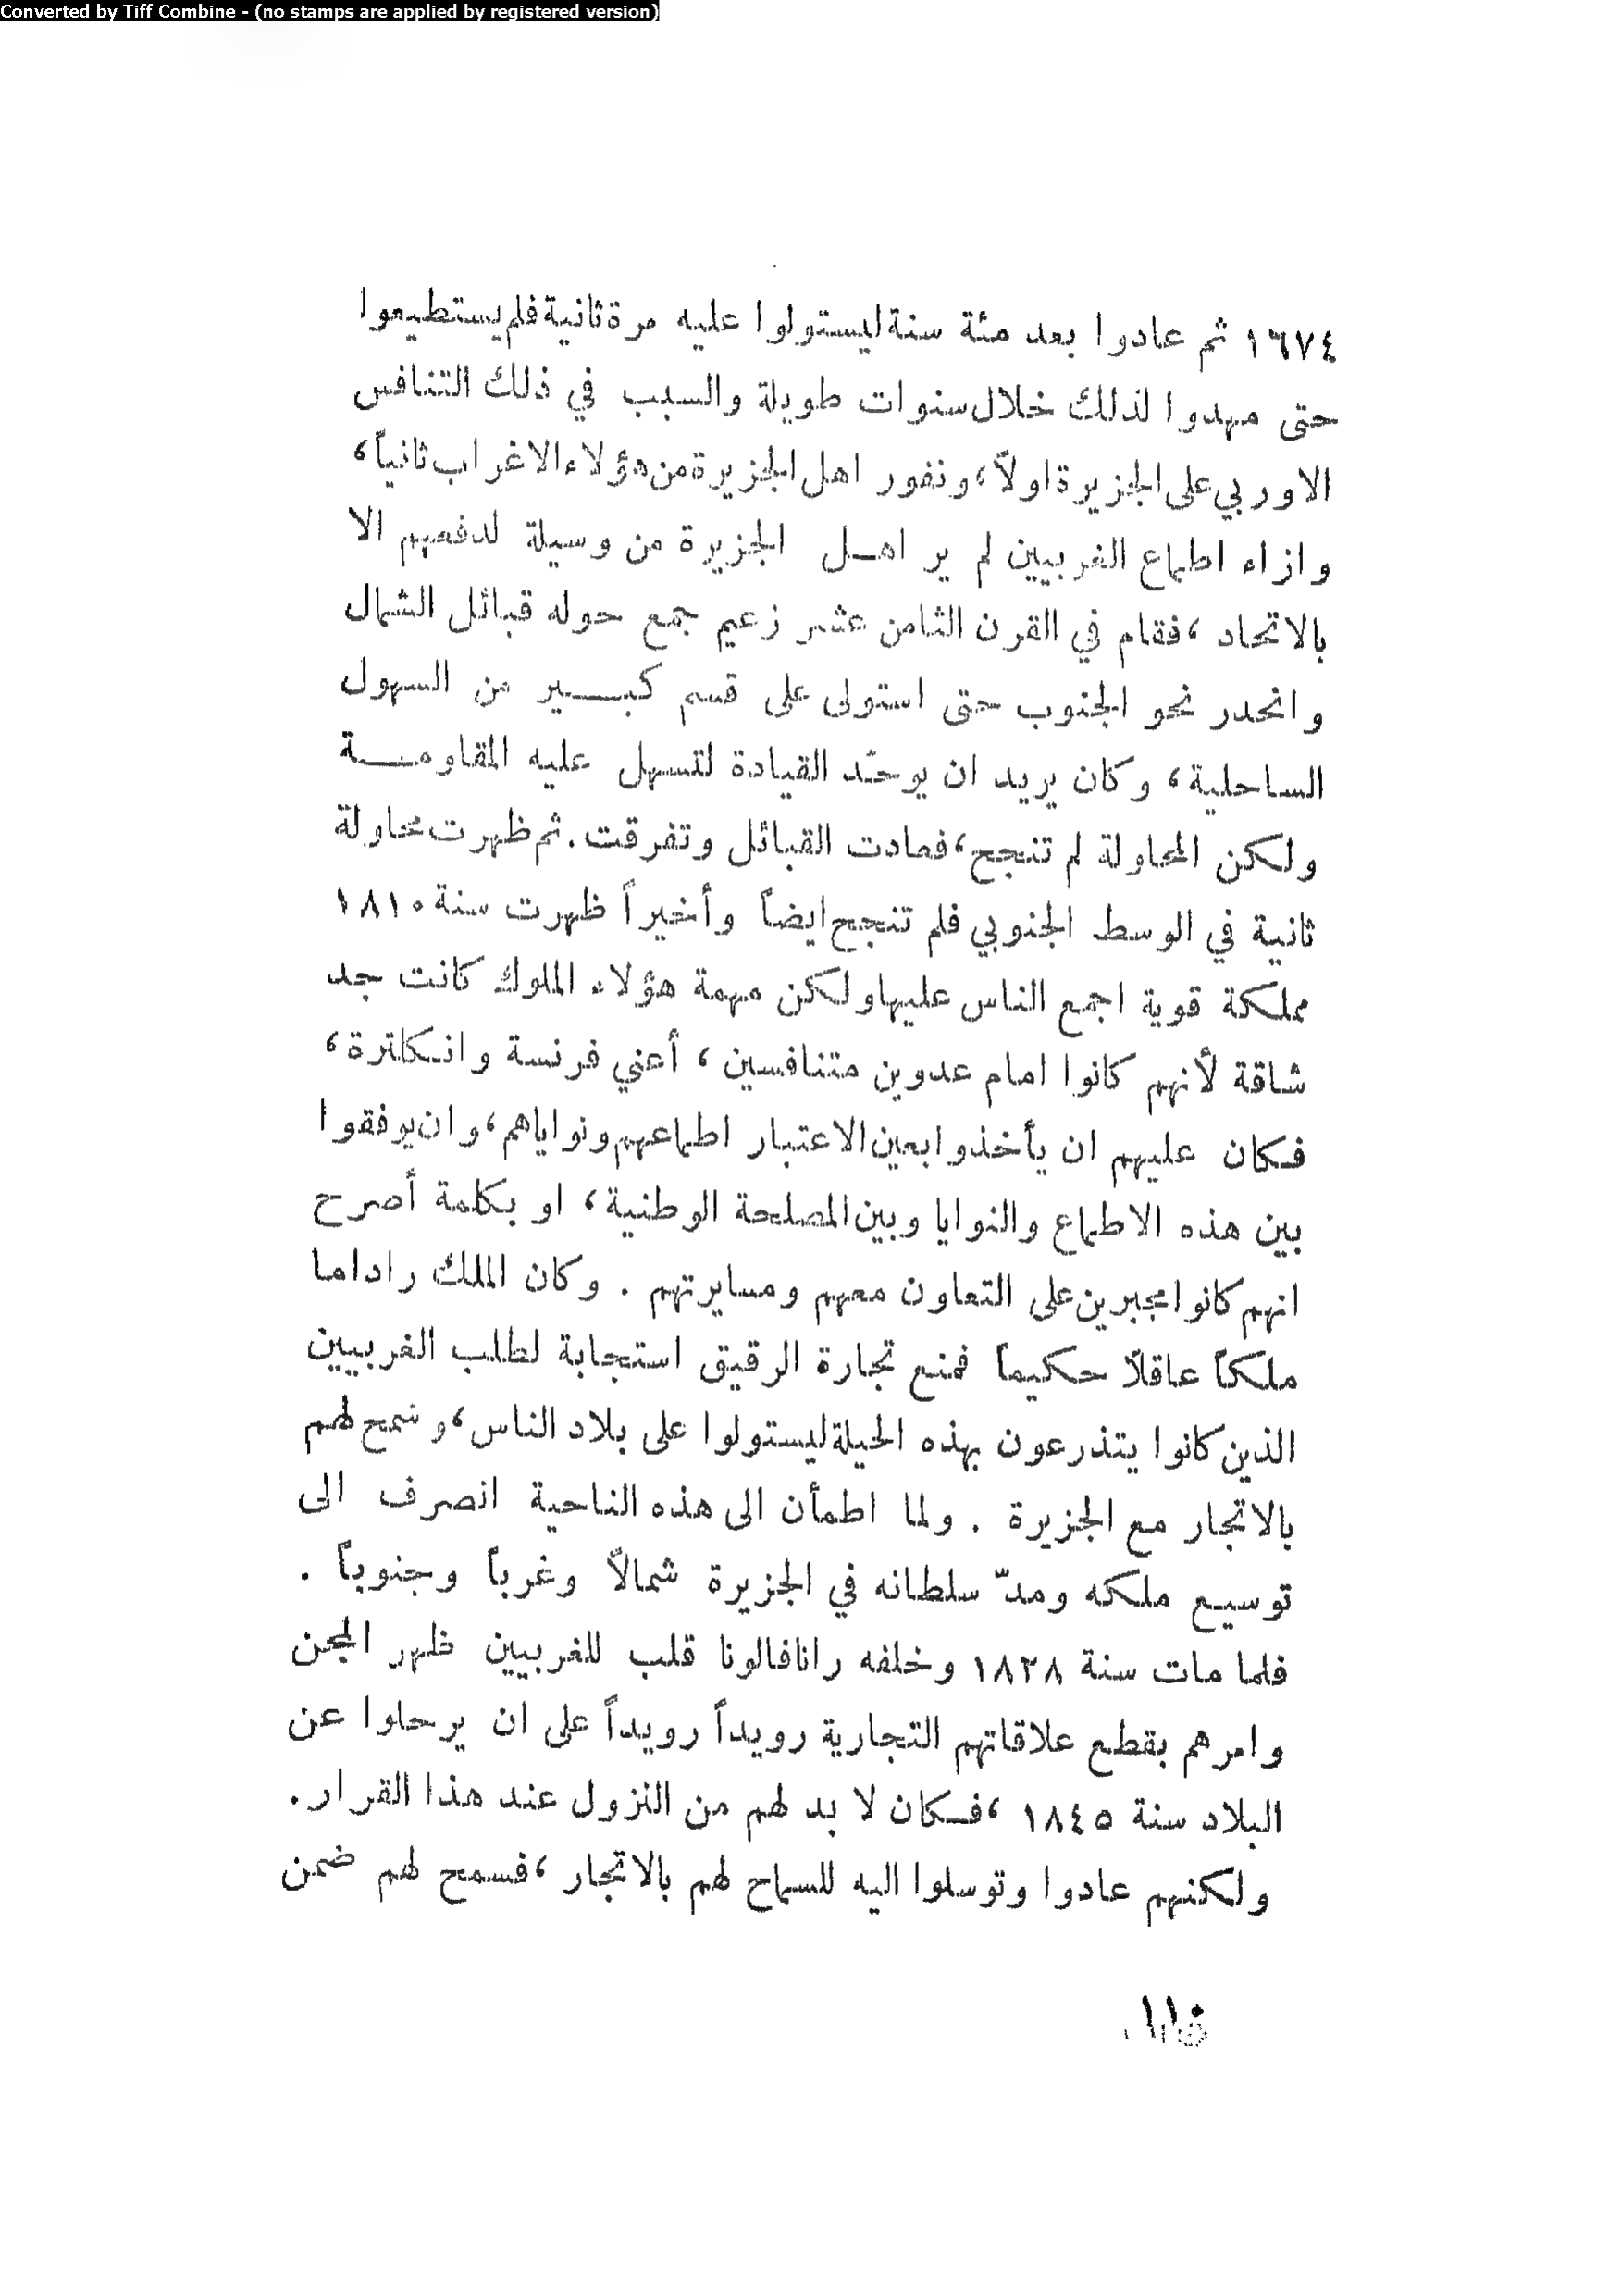 Converted by Tiff Combine - (no stamps are applied by registered version)
١٦٧٤ ثم عادوا بعد مئة سنة ليستولوا عليه مرة ثانية فلم يستطيعوا
حتى مهدوا لذلك خلال سنوات طويلة والسبب في ذلك التنافس
الاوربي على الجزيرة اولاً، ونفور اهل الجزيرة من هؤلاء الاغراب ثانياً،
وازاء اطماع الغربيين لم ير اهل الجزيرة من وسيلة لدفعهم الا
بالاتحاد، فقام في القرن الثامن عشر زعيم جمع حوله قبائل الشمال
وانحدر نحو الجنوب حتى استولى على قسم كبير من السهول
الساحلية، وكان يريد ان يوحّد القيادة لتسهل عليه المقاومة
ولكن المحاولة لم تنجح، فعادت القبائل وتفرقت. ثم ظهرت محاولة
ثانية في الوسط الجنوبي فلم تنجح ايضاً وأخيراً ظهرت سنة ١٨١٠
مملكة قوية اجمع الناس عليها ولكن مهمة هؤلاء الملوك كانت جد
شاقة لأنهم كانوا امام عدوين متنافسين، أعني فرنسة وانكلترة،
فكان عليهم ان يأخذوا بعين الاعتبار اطماعهم ونواياهم، وان يوفقوا
بين هذه الاطماع والنوايا وبين المصلحة الوطنية، او بكلمة أصرح
انهم كانوا مجبرين على التعاون معهم ومسايرتهم . وكان الملك راداما
ملكاً عاقلاً حكيماً فمنع تجارة الرقيق استجابة لطلب الغربيين
الذين كانوا يتذرعون بهذه الحيلة ليستولوا على بلاد الناس، وسمح لهم
بالاتجار مع الجزيرة . ولما اطمأن الى هذه الناحية انصرف الى
توسيع ملكه ومدّ سلطانه في الجزيرة شمالاً وغرباً وجنوباً .
فلما مات سنة ١٨٢٨ وخلفه رانافالونا قلب للغربيين ظهر المجن
وامرهم بقطع علاقاتهم التجارية رويداً رويداً على ان يرحلوا عن
البلاد سنة ١٨٤٥، فكان لا بد لهم من النزول عند هذا القرار.
ولكنهم عادوا وتوسلوا اليه للسماح لهم بالاتجار، فسمح لهم ضمن